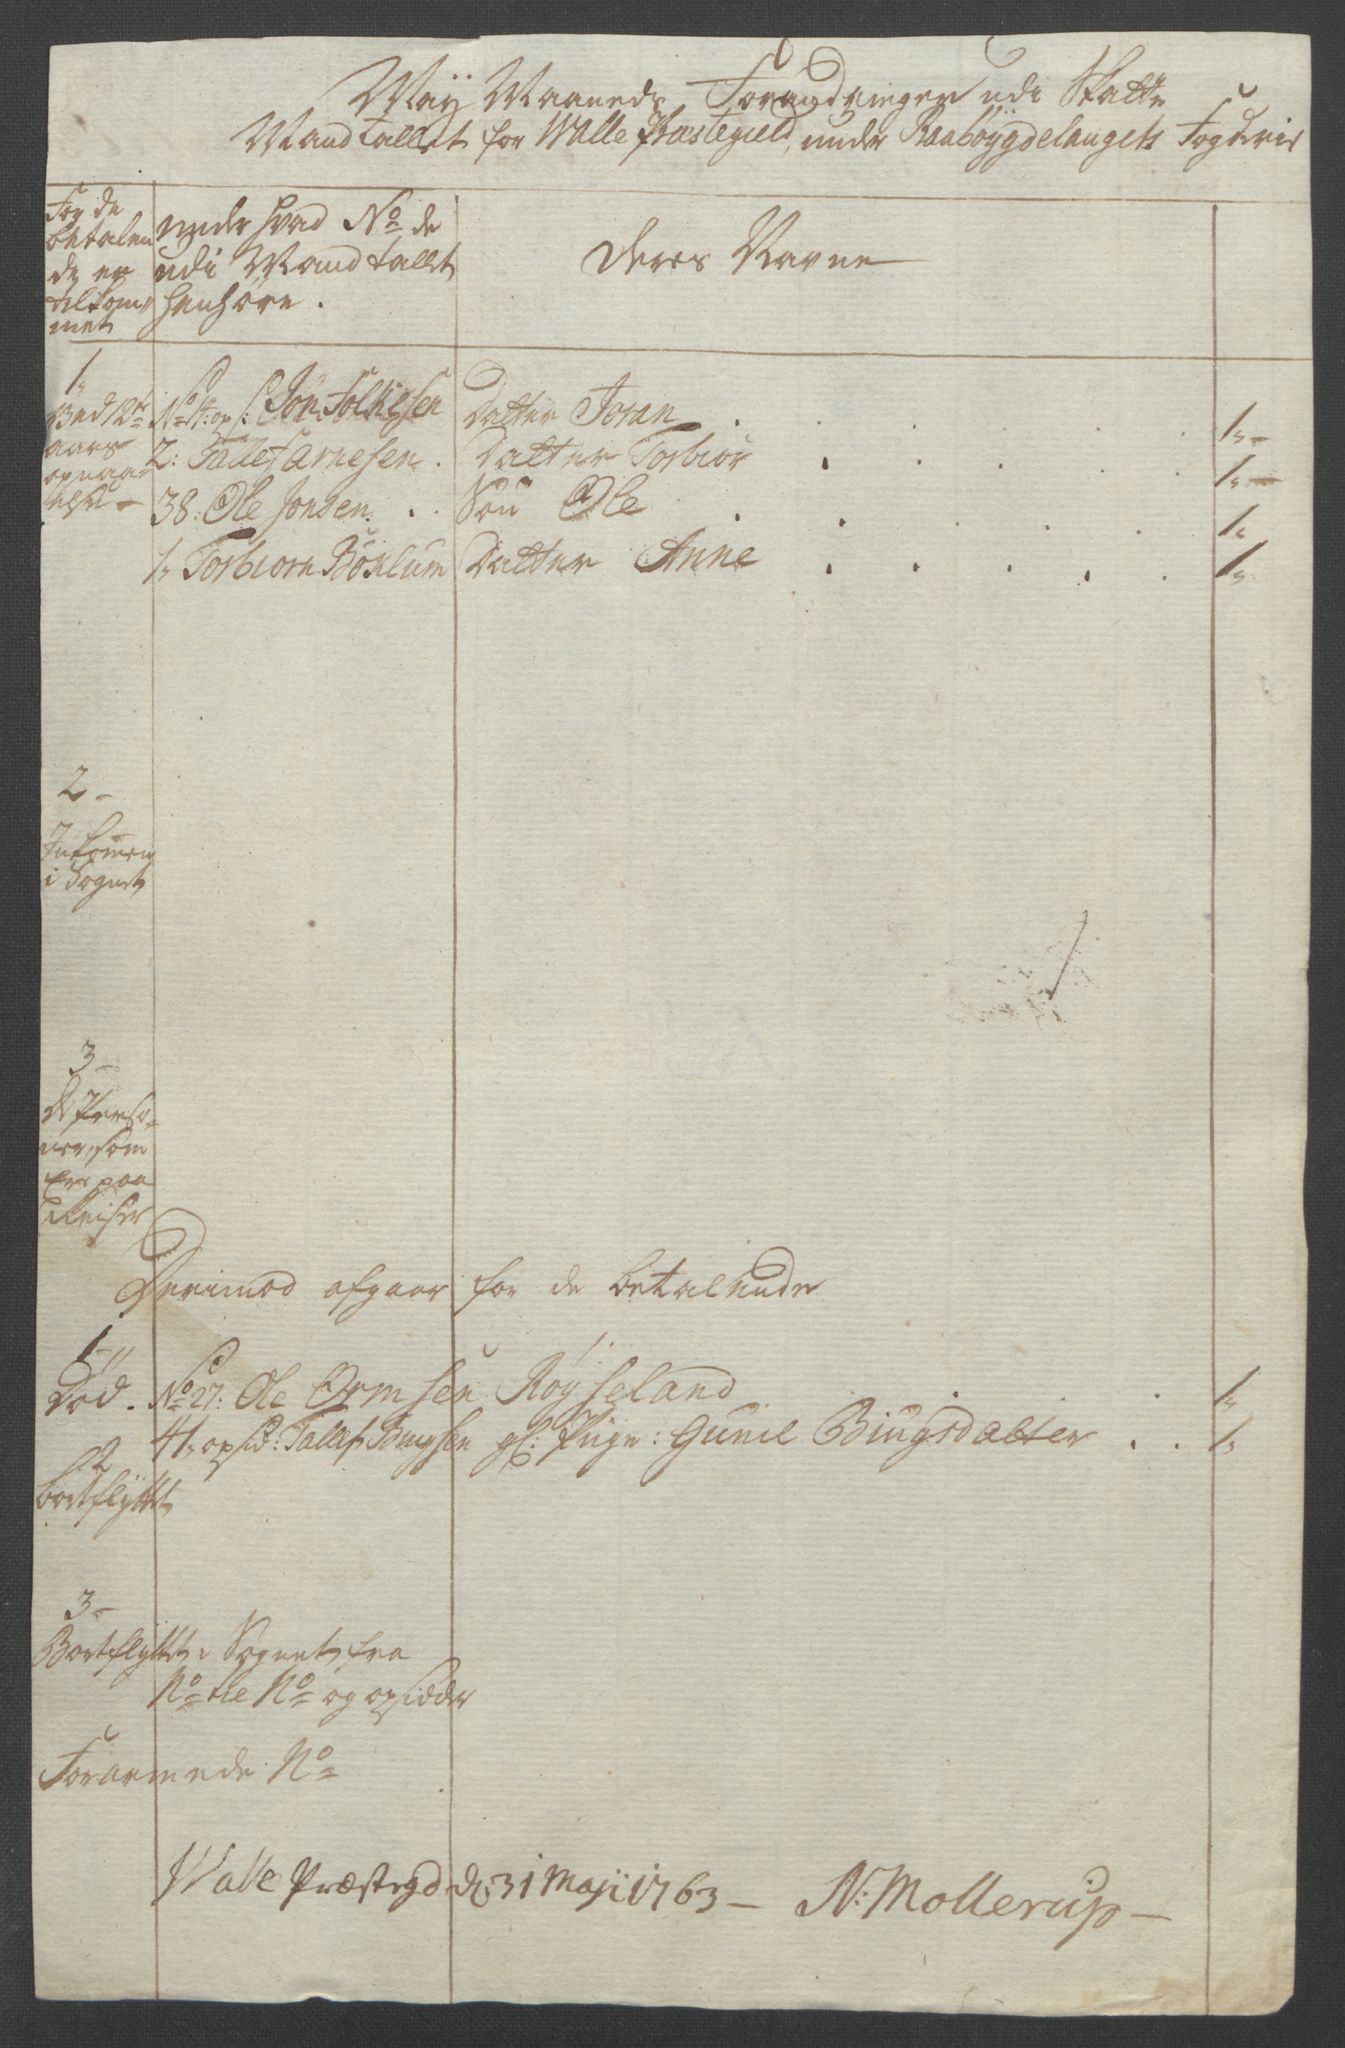 Maÿ Maaneds Forandringer udi Skatte
Mandtallet for Walle Præstegield, under Raabøygdelaugets Fogderie
For de
betalen
de er
tilkom
met
under hvad No de
udi Mandtallet
henhøre.
Deres Navne
1.
Ved 12te
aars
opnaa
else
No 4: ops: Jon Folkesen Datter Joran 1
2: Tallef Arnesen. Datter Torbiør 1
38: Ole Jonsen.. Søn Ole 1
1, Torbiorn Bøxlum Datter Anne 1
2
Indkomen
i Sognet
3
De Perso-
ner, som
Ere paa
Reiser
Derimod afgaar for de betalende
1
Død. No 27: Ole Ormsen Røyseland 1
41, opsid: Tallef Bingsen gl: Pige: Gunil Biugsdatter.. 1
2
bortflyttet
3
Bortflyttet i Sognet fra
No til No og opsidder
Forarmede No
Walle Præstegd. d. 31 Maji 1763 — N: Mollerup